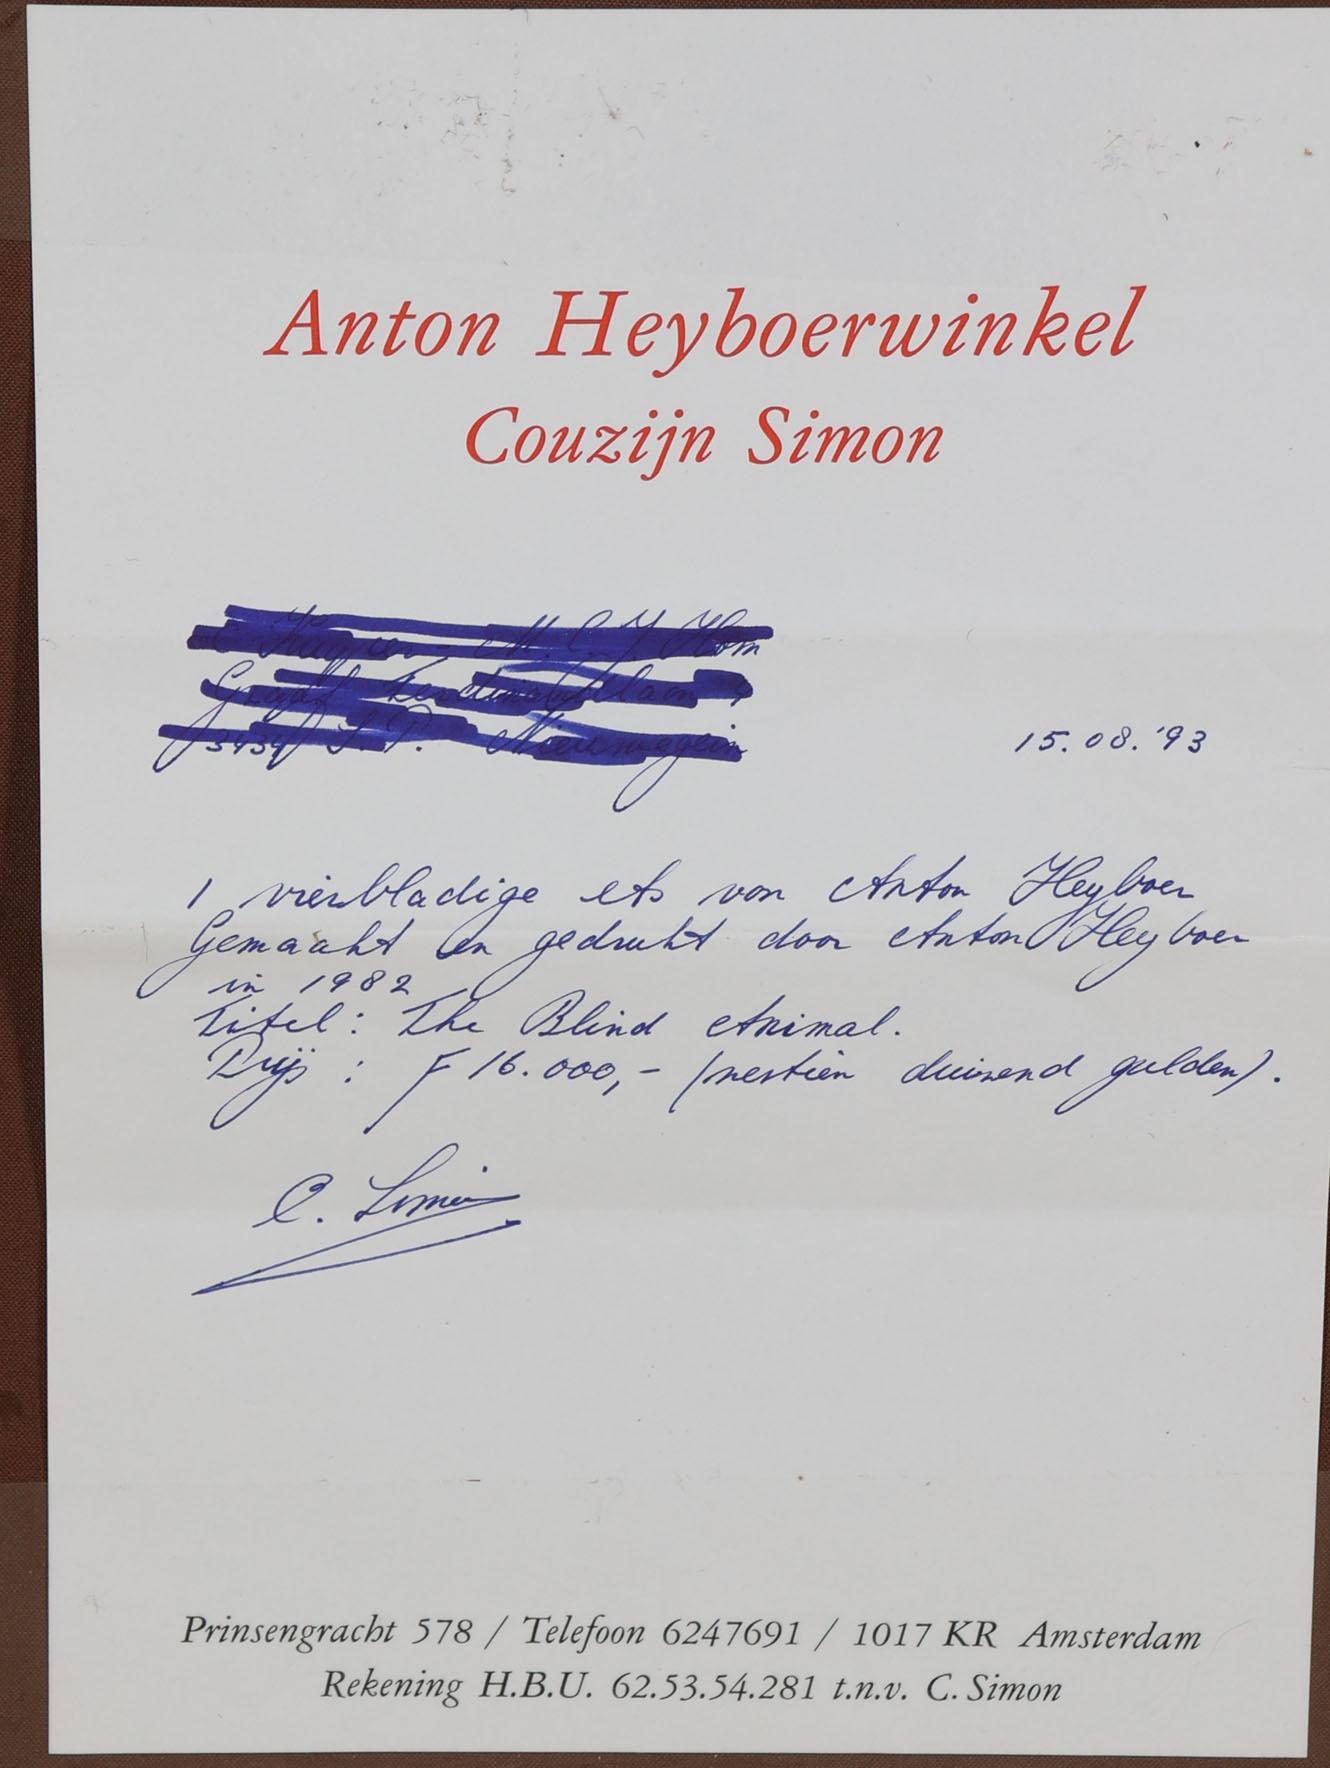 Anton Heyboerwinkel
Couzijn Simon
15.08.'93
1 vierbladige ets van Anton Heyboer
Gemaakt en gedrukt door Anton Heyboer
in 1982
Titel: The Blind Animal.
Prijs: F 16.000,- (zestien duizend gulden).
C. Simon
Prinsengracht 578 / Telefoon 6247691 / 1017 KR Amsterdam
Rekening H.B.U. 62.53.54.281 t.n.v. C. Simon